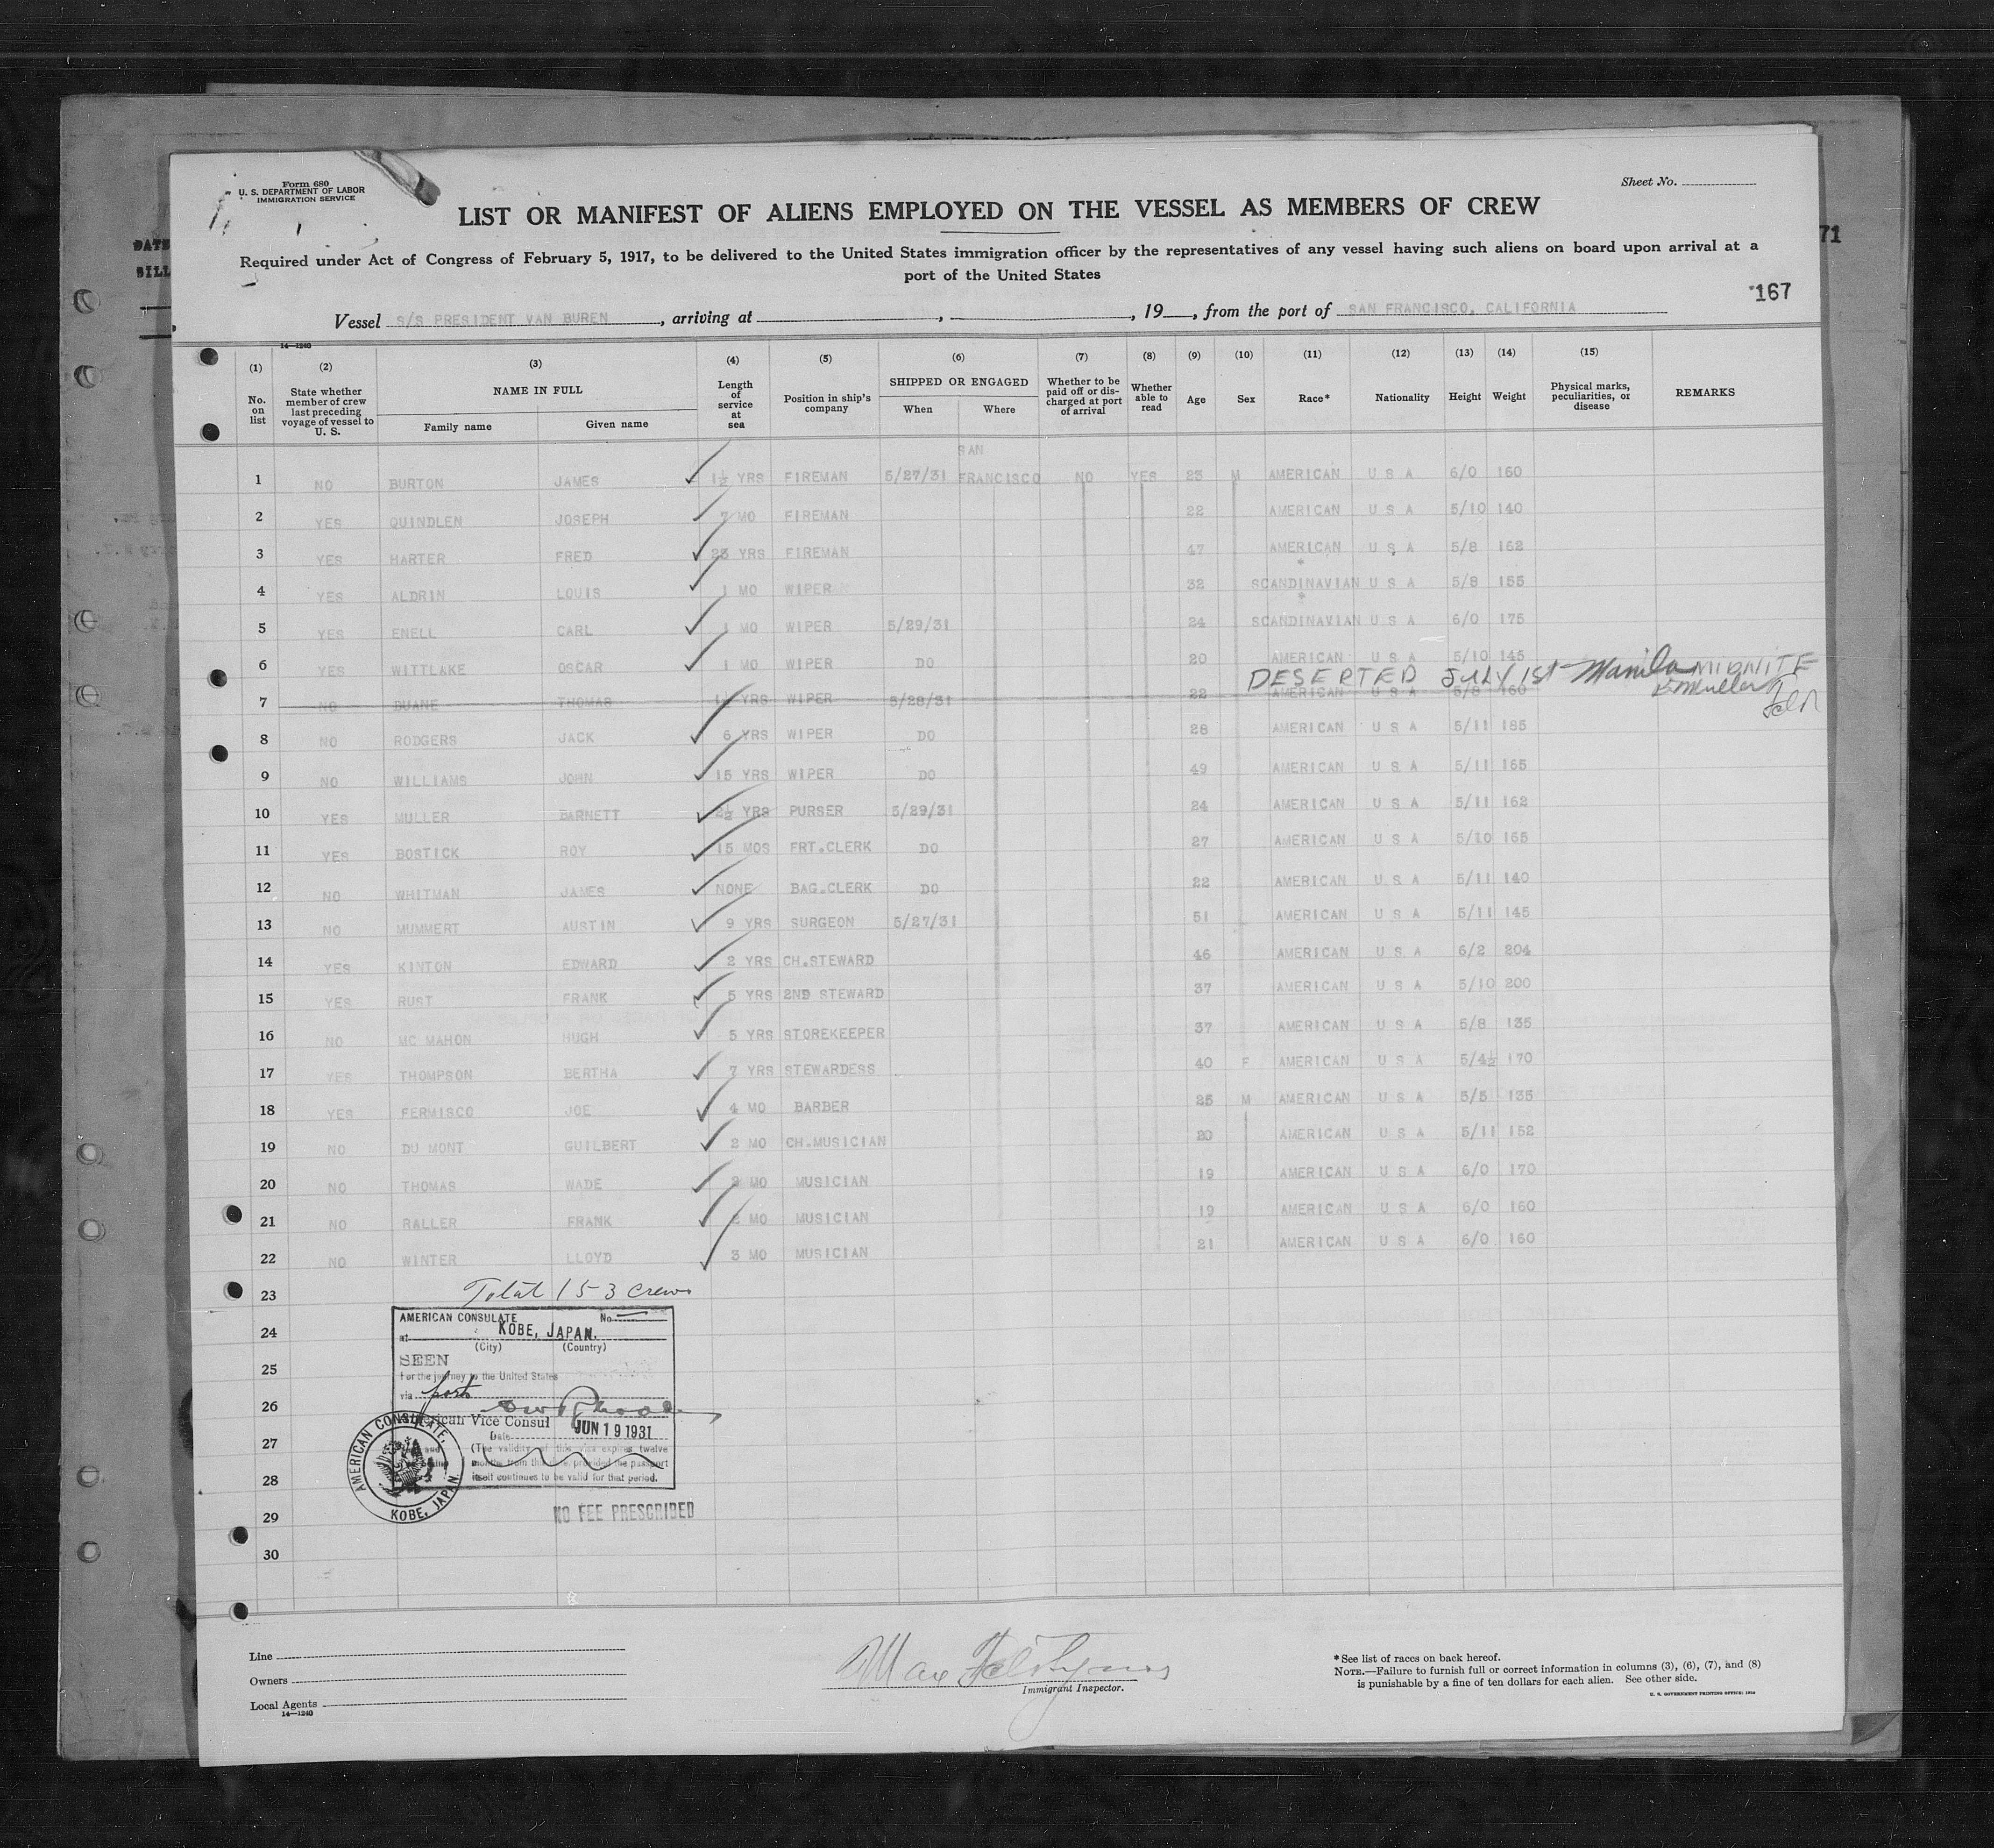 Form 680
U. S. DEPARTMENT OF LABOR
IMMIGRATION SERVICE
Sheet No.
LIST OR MANIFEST OF ALIENS EMPLOYED ON THE VESSEL AS MEMBERS OF CREW
Required under Act of Congress of February 5, 1917, to be delivered to the United States immigration officer by the representatives of any vessel having such aliens on board upon arrival at a
port of the United States
DATE
71
167
Vessel S/S PRESIDENT VAN BUREN, arriving at , , 19 , from the port of SAN FRANCISCO, CALIFORNIA
14—1240
(1) (2) (3) (4) (5) (6) (7) (8) (9) (10) (11) (12) (13) (14) (15)
No. on list State whether member of crew last preceding voyage of vessel to U. S. NAME IN FULL Family name Given name Length of service at sea Position in ship's company SHIPPED OR ENGAGED When Where Whether to be paid off or discharged at port of arrival Whether able to read Age Sex Race* Nationality Height Weight Physical marks, peculiarities, or disease REMARKS
1 NO BURTON JAMES 1½ YRS FIREMAN 5/27/31 SAN FRANCISCO NO YES 23 M AMERICAN U S A 6/0 160
2 YES QUINDLEN JOSEPH 7 MO FIREMAN 22 AMERICAN U S A 5/10 140
3 YES HARTER FRED 23 YRS FIREMAN 47 AMERICAN U S A 5/8 162
4 YES ALDRIN LOUIS 1 MO WIPER 32 SCANDINAVIAN U S A 5/8 155
5 YES ENELL CARL 1 MO WIPER 5/29/31 24 SCANDINAVIAN U S A 6/0 175
6 YES WITTLAKE OSCAR 1 MO WIPER DO 20 AMERICAN U S A 5/10 145
DESERTED JULY 1ST Manila MIDNITE
B Muller
7 NO DUANE THOMAS YRS WIPER 5/28/31 22 AMERICAN U S A 5/8 160
8 NO RODGERS JACK 6 YRS WIPER DO 28 AMERICAN U S A 5/11 185
9 NO WILLIAMS JOHN 15 YRS WIPER DO 49 AMERICAN U S A 5/11 165
10 YES MULLER BARNETT 2½ YRS PURSER 5/29/31 24 AMERICAN U S A 5/11 162
11 YES BOSTICK ROY 15 MOS FRT.CLERK DO 27 AMERICAN U S A 5/10 165
12 NO WHITMAN JAMES NONE BAG.CLERK DO 22 AMERICAN U S A 5/11 140
13 NO MUMMERT AUSTIN 9 YRS SURGEON 5/27/31 51 AMERICAN U S A 5/11 145
14 YES KINTON EDWARD 2 YRS CH.STEWARD 46 AMERICAN U S A 6/2 204
15 YES RUST FRANK 5 YRS 2ND STEWARD 37 AMERICAN U S A 5/10 200
16 NO MC MAHON HUGH 5 YRS STOREKEEPER 37 AMERICAN U S A 5/8 135
17 YES THOMPSON BERTHA 7 YRS STEWARDESS 40 F AMERICAN U S A 5/4½ 170
18 YES FERMISCO JOE 4 MO BARBER 25 M AMERICAN U S A 5/5 135
19 NO DU MONT GUILBERT 2 MO CH.MUSICIAN 20 AMERICAN U S A 5/11 152
20 NO THOMAS WADE 2 MO MUSICIAN 19 AMERICAN U S A 6/0 170
21 NO RALLER FRANK MO MUSICIAN 19 AMERICAN U S A 6/0 160
22 NO WINTER LLOYD 3 MO MUSICIAN 21 AMERICAN U S A 6/0 160
23 Total 153 crew
24
25
26
27
28
29
30
AMERICAN CONSULATE No.
at KOBE, JAPAN.
(City) (Country)
SEEN
For the journey to the United States
via
American Vice Consul
Date JUN 19 1931
(The validity of this visa expires twelve
months from this date, provided the passport
itself continues to be valid for that period.
AMERICAN CONSULATE, KOBE, JAPAN
NO FEE PRESCRIBED
Line
Owners
Local Agents
14—1240
Immigrant Inspector.
*See list of races on back hereof.
NOTE.—Failure to furnish full or correct information in columns (3), (6), (7), and (8)
is punishable by a fine of ten dollars for each alien. See other side.